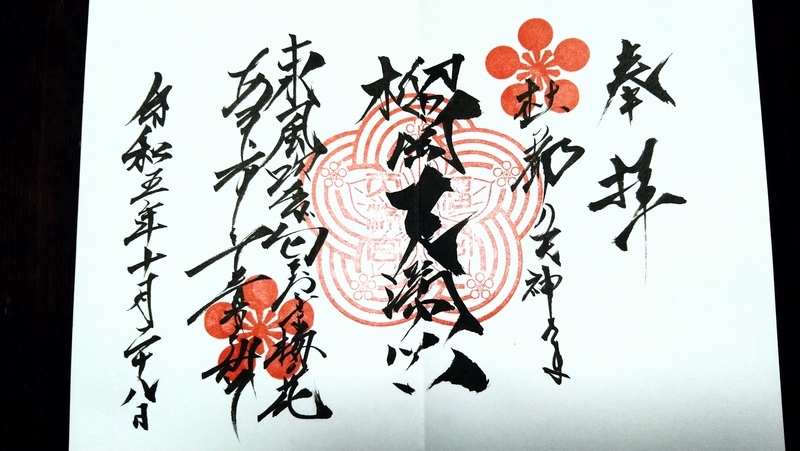 奉拝
杜の都の天神さま
榴岡天満宮
東風吹かば匂ひおこせよ梅の花
あるじなしとて春な忘れそ
令和五年十月二十八日